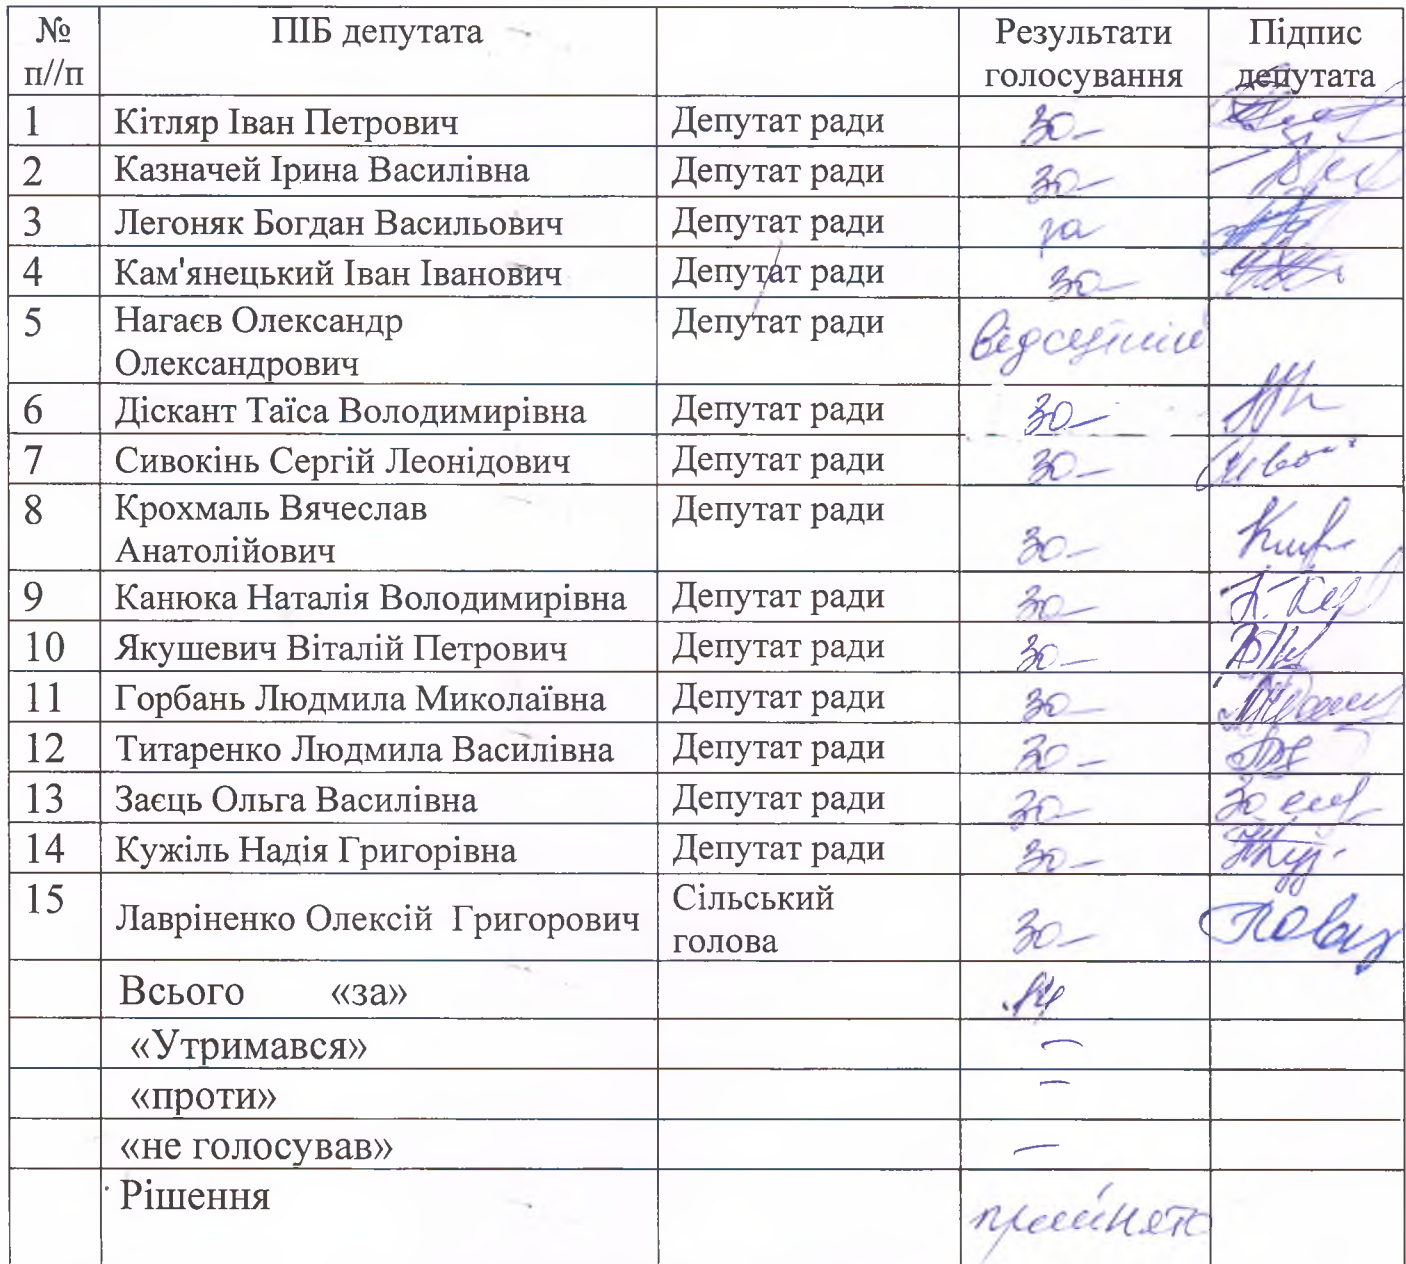 № ПІБ депутата Результати Підпис
п//п голосування депутата
1 Кітляр Іван Петрович Депутат ради за
2 Казначей Ірина Василівна Депутат ради за
3 Легоняк Богдан Васильович Депутат ради за
4 Кам'янецький Іван Іванович Депутат ради за
5 Нагаєв Олександр Депутат ради відсутній
Олександрович
6 Діскант Таїса Володимирівна Депутат ради за
7 Сивокінь Сергій Леонідович Депутат ради за
8 Крохмаль Вячеслав Депутат ради
Анатолійович за
9 Канюка Наталія Володимирівна Депутат ради за
10 Якушевич Віталій Петрович Депутат ради за
11 Горбань Людмила Миколаївна Депутат ради за
12 Титаренко Людмила Василівна Депутат ради за
13 Заєць Ольга Василівна Депутат ради за
14 Кужіль Надія Григорівна Депутат ради за
15 Лавріненко Олексій Григорович Сільський
голова за
Всього «за» 14
«Утримався» —
«проти» —
«не голосував» —
Рішення прийнято